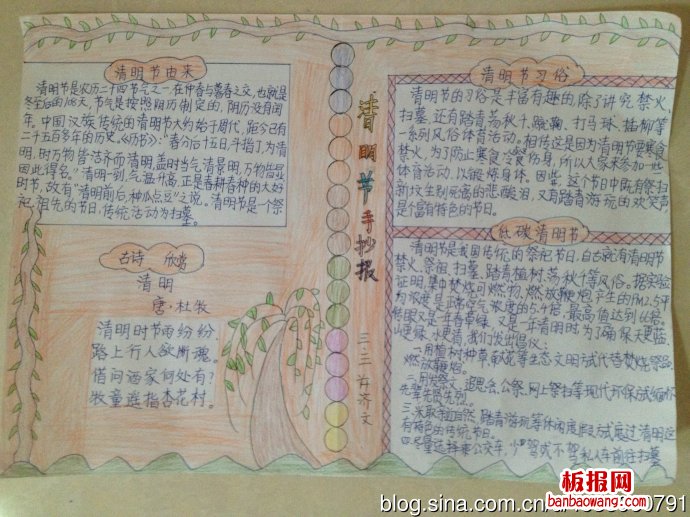 清明节由来
清明节是农历二十四节气之一,在仲春与暮春之交,也就是
冬至后的108天。节气是按照阳历制定的,阴历没有闰
年。中国汉族传统的清明节大约始于周代,距今已有
二千五百多年的历史。《历书》:"春分后十五日,斗指丁,为清
明,时万物皆洁齐而清明,盖时当气清景明,万物皆显
因此得名。"清明一到,气温升高,正是春耕春种的大好
时节,故有"清明前后,种瓜点豆"之说。清明节是一个祭
祀祖先的节日,传统活动为扫墓。
古诗 欣赏
清明
唐·杜牧
清明时节雨纷纷,
路上行人欲断魂。
借问酒家何处有?
牧童遥指杏花村。
清明节手抄报
三.三 齐文
清明节习俗
清明节的习俗是丰富有趣的,除了讲究禁火、
扫墓,还有踏青、荡秋千、蹴鞠、打马球、插柳等
一系列风俗体育活动。相传这是因为清明节要寒食
禁火,为了防止寒食冷餐伤身,所以大家来参加一些
体育活动,以锻炼身体。因些,这个节日中既有祭扫
新坟生别死离的悲酸泪,又有踏青游玩的欢笑声,
是个富有特色的节日。
低碳清明节
清明节是我国传统的祭祀节日,自古就有清明节
禁火、祭祖、扫墓、踏青植树荡秋千等风俗。据实验
证明,集中焚烧可燃物、燃放鞭炮产生的PM2.5平
均浓度是正常空气浓度的5.4倍,最高值达到6倍。
转眼又是一年春草绿,又是一年清明时,为了确保天更蓝、
山更绿、水更清,我们发出倡议:
一.用植树种草献花等生态文明方式代替焚烧祭品、
燃放鞭炮。
二.用发祭文、追思会、公祭、网上祭扫等现代环保方式缅怀
先辈先贤先烈。
三.采取利自然、踏青游玩等休闲度假方式度过清明这
有特色的传统节日。
四.尽量选择乘公交车,少驾或不驾私人车前往扫墓
板报网
banbaowang.com